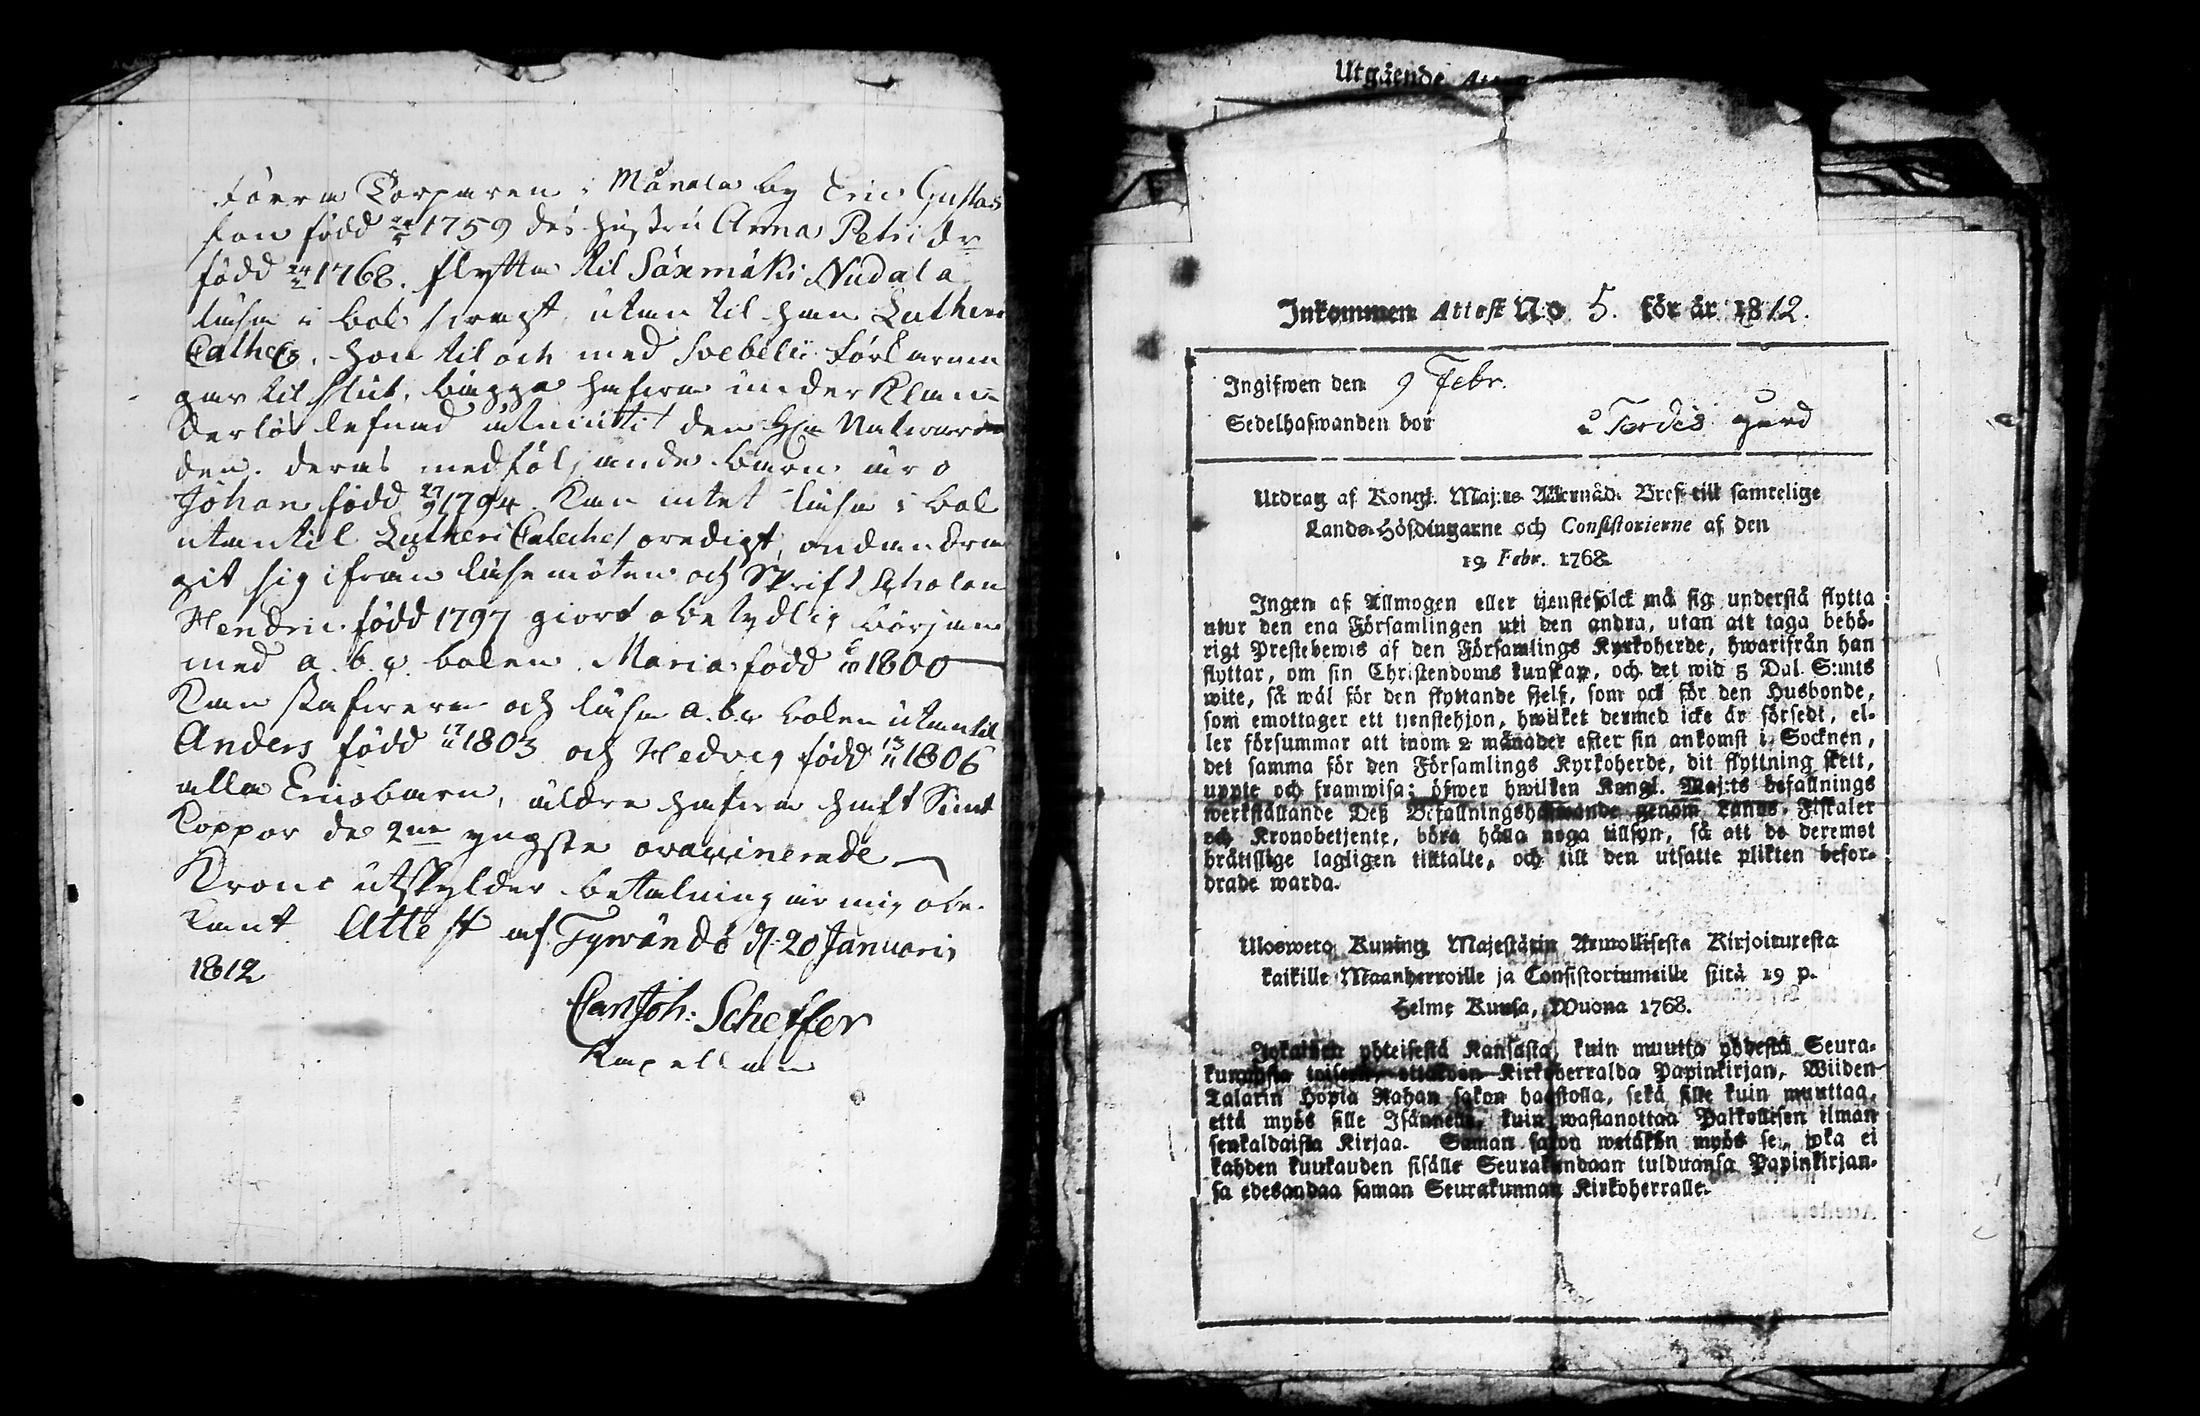 Förra Torparen i Månala by Eric Gustas
son född 24/5 1759 des hustru Anna Petri dr
född 24/2 1768. flytta til Säxmäki Nudala
läsa i bok svagt, utan til han Lutheri
Cateches. hon til och med Svebelii förklarin
gar til slut, bägge hafva under klan-
derlös lefnad utnuttit den H:a Nattvar
den. deras medföljande barn äro
Johan född 27/9 1794. kan intet läsa i bok
utantil Lutheri Cateches oredigt, undandra
git sig ifrån läsemöten och Skriftskolan
Hendric född 1797 giort obetydlig början
med a.b.c. boken. Maria född 6/10 1800
kan stafvera och läsa a.b.c boken utantil
Anders född 17/11 1803 och Hedvig född 13/11 1806
alla Ericsbarn, äldre hafva haft Smit
koppor de 2ne yngste ovaccinerade
Krono utskylders betalning är mig obe-
kant. Attest af Tyrvändö d. 20 Januarii
1812
Carl Joh: Scheffer
Kapellan
Utgående
Inkommen Attest No 5. för år 1812.
Ingifwen den 9 Febr.
Sedelhafwanden bor å Tordis gård
Utdrag af Kongl. Maj:ts Allernåd. Bref till samtelige
Lands-Höfdingarne och Consistorierne af den
19 Febr. 1768.
Ingen af Allmogen eller tjenstefolck må sig understå flytta
utur den ena Församlingen uti den andra, utan att taga behö-
rigt Prestebewis af den Församlings Kyrkoherde, hwarifrån han
flyttar, om sin Christendoms kunskap, och det wid 5 Dal. S:mts
wite, så wäl för den flyttande sjelf, som ock för den Husbonde,
som emottager ett tjenstehjon, hwilket dermed icke är försedt, el-
ler försummar att inom 2 månader efter sin ankomst i Socknen,
det samma för den Församlings Kyrkoherde, dit flyttning skett,
uppte och framwisa; öfwer hwilken Kongl. Maj:ts befallnings
werkställande Deß Befallningshafwande genom Lands-Fiskaler
och Kronobetjente, böra hålla noga tillsyn, så att de deremot
brättslige lagligen tilltalte, och till den utsatte plikten befor-
drade warda.
Uloswero Kuning. Majestätin Armollisesta Kirjoituresta
kaikille Maanherroille ja Consistoriumeille siitä 19 p.
Helme Kuusa, Wuona 1768.
Jokainen yhteisestä Kansasta, kuin muutta yhdestä Seura-
kunnasta toiseen, ottakoon Kirkoherralda Papinkirjan, Wiiden
Talarin Hopia Rahan sakon haastolla, sekä sille kuin muuttaa,
että myös sille Isännelle, kuin wastanottaa Palkollisen ilman
senkaldaista Kirjaa. Saman sakon wetäkön myös se, joka ei
kahden kuukauden sisälle Seurakundaan tulduansa Papinkirjan-
sa edesandaa saman Seurakunnan Kirkoherralle.